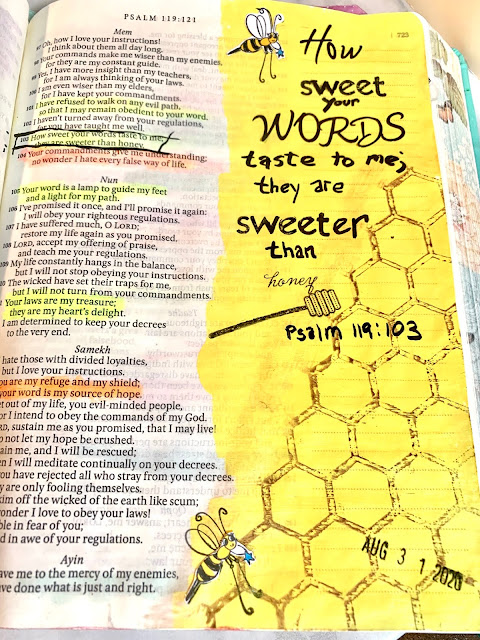 PSALM 119:121
723
Mem
97 Oh, how I love your instructions!
I think about them all day long.
98 Your commands make me wiser than my enemies,
for they are my constant guide.
99 Yes, I have more insight than my teachers,
for I am always thinking of your laws.
100 I am even wiser than my elders,
for I have kept your commandments.
101 I have refused to walk on any evil path,
so that I may remain obedient to your word.
102 I haven't turned away from your regulations,
for you have taught me well.
103 How sweet your words taste to me;
they are sweeter than honey.
104 Your commandments give me understanding;
no wonder I hate every false way of life.
Nun
105 Your word is a lamp to guide my feet
and a light for my path.
106 I've promised it once, and I'll promise it again:
I will obey your righteous regulations.
107 I have suffered much, O LORD;
restore my life again as you promised.
108 LORD, accept my offering of praise,
and teach me your regulations.
109 My life constantly hangs in the balance,
but I will not stop obeying your instructions.
The wicked have set their traps for me,
but I will not turn from your commandments.
Your laws are my treasure;
they are my heart's delight.
I am determined to keep your decrees
to the very end.
Samekh
hate those with divided loyalties,
but I love your instructions.
are my refuge and my shield;
your word is my source of hope.
out of my life, you evil-minded people,
I intend to obey the commands of my God.
sustain me as you promised, that I may live!
not let my hope be crushed.
me, and I will be rescued;
I will meditate continually on your decrees.
have rejected all who stray from your decrees.
are only fooling themselves.
off the wicked of the earth like scum;
wonder I love to obey your laws!
in fear of you;
in awe of your regulations.
Ayin
me to the mercy of my enemies,
done what is just and right.
How
sweet
your
WORDS
taste to me;
they are
sweeter
than
honey
Psalm 119:103
AUG 31 2020